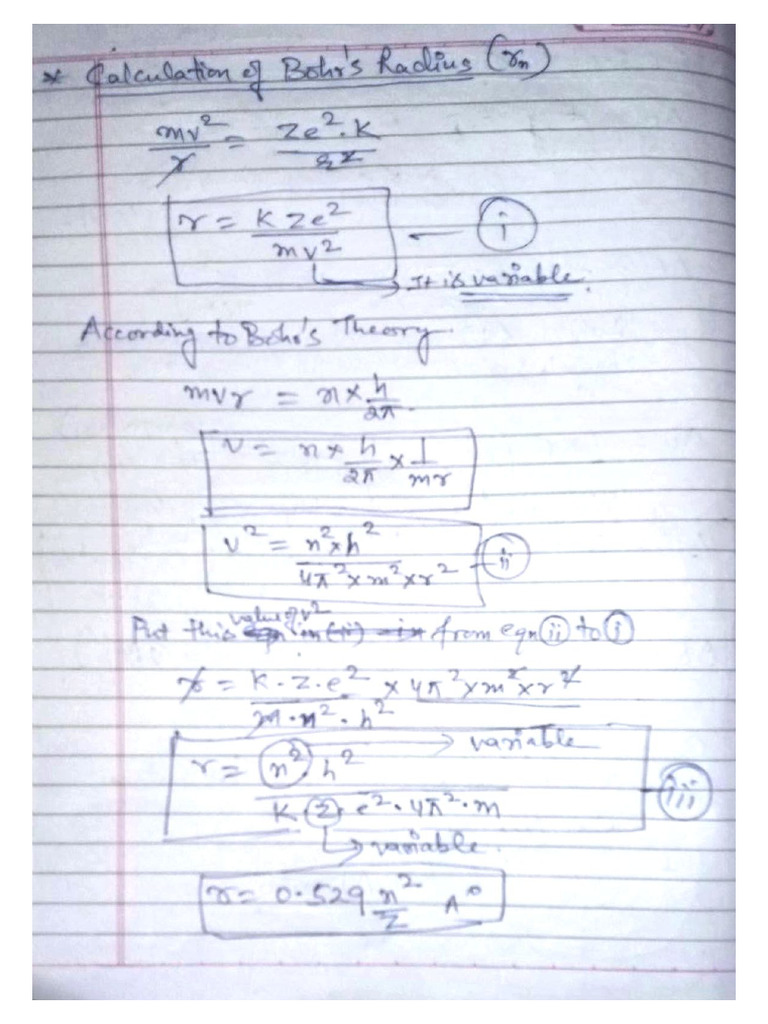 * Calculation of Bohr's Radius (rn)
mv²/r = Ze².K/r²
r = K Ze²/mv² — (i)
→ It is variable.
According to Bohr's Theory.
mvr = n × h/2π.
v = n × h/2π × 1/mr
v² = n²×h²/4π²×m²×r² — (ii)
value of v²
Put this from eqn (ii) to (i)
r = K.Z.e² × 4π²×m²×r²/m.n².h²
r = n².h²/K.Z.e².4π².m → variable — (iii)
→ variable.
r = 0.529 n²/Z A°